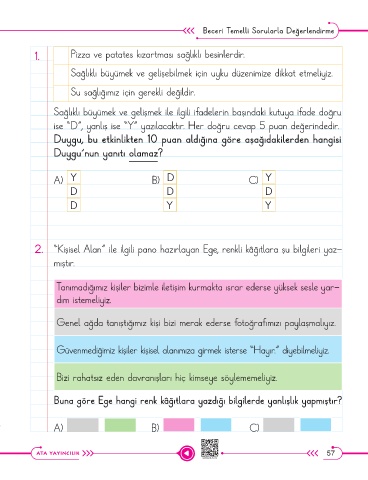 Beceri Temelli Sorularla Değerlendirme
1. Pizza ve patates kızartması sağlıklı besinlerdir.
Sağlıklı büyümek ve gelişebilmek için uyku düzenimize dikkat etmeliyiz.
Su sağlığımız için gerekli değildir.
Sağlıklı büyümek ve gelişmek ile ilgili ifadelerin başındaki kutuya ifade doğru
ise “D”, yanlış ise “Y” yazılacaktır. Her doğru cevap 5 puan değerindedir.
Duygu, bu etkinlikten 10 puan aldığına göre aşağıdakilerden hangisi
Duygu’nun yanıtı olamaz?
A) Y B) D C) Y
D D D
D Y Y
2. “Kişisel Alan” ile ilgili pano hazırlayan Ege, renkli kâğıtlara şu bilgileri yaz-
mıştır.
Tanımadığımız kişiler bizimle iletişim kurmakta ısrar ederse yüksek sesle yar-
dım istemeliyiz.
Genel ağda tanıştığımız kişi bizi merak ederse fotoğrafımızı paylaşmalıyız.
Güvenmediğimiz kişiler kişisel alanımıza girmek isterse “Hayır.” diyebilmeliyiz.
Bizi rahatsız eden davranışları hiç kimseye söylememeliyiz.
Buna göre Ege hangi renk kâğıtlara yazdığı bilgilerde yanlışlık yapmıştır?
A) B) C)
ATA YAYINCILIK 57